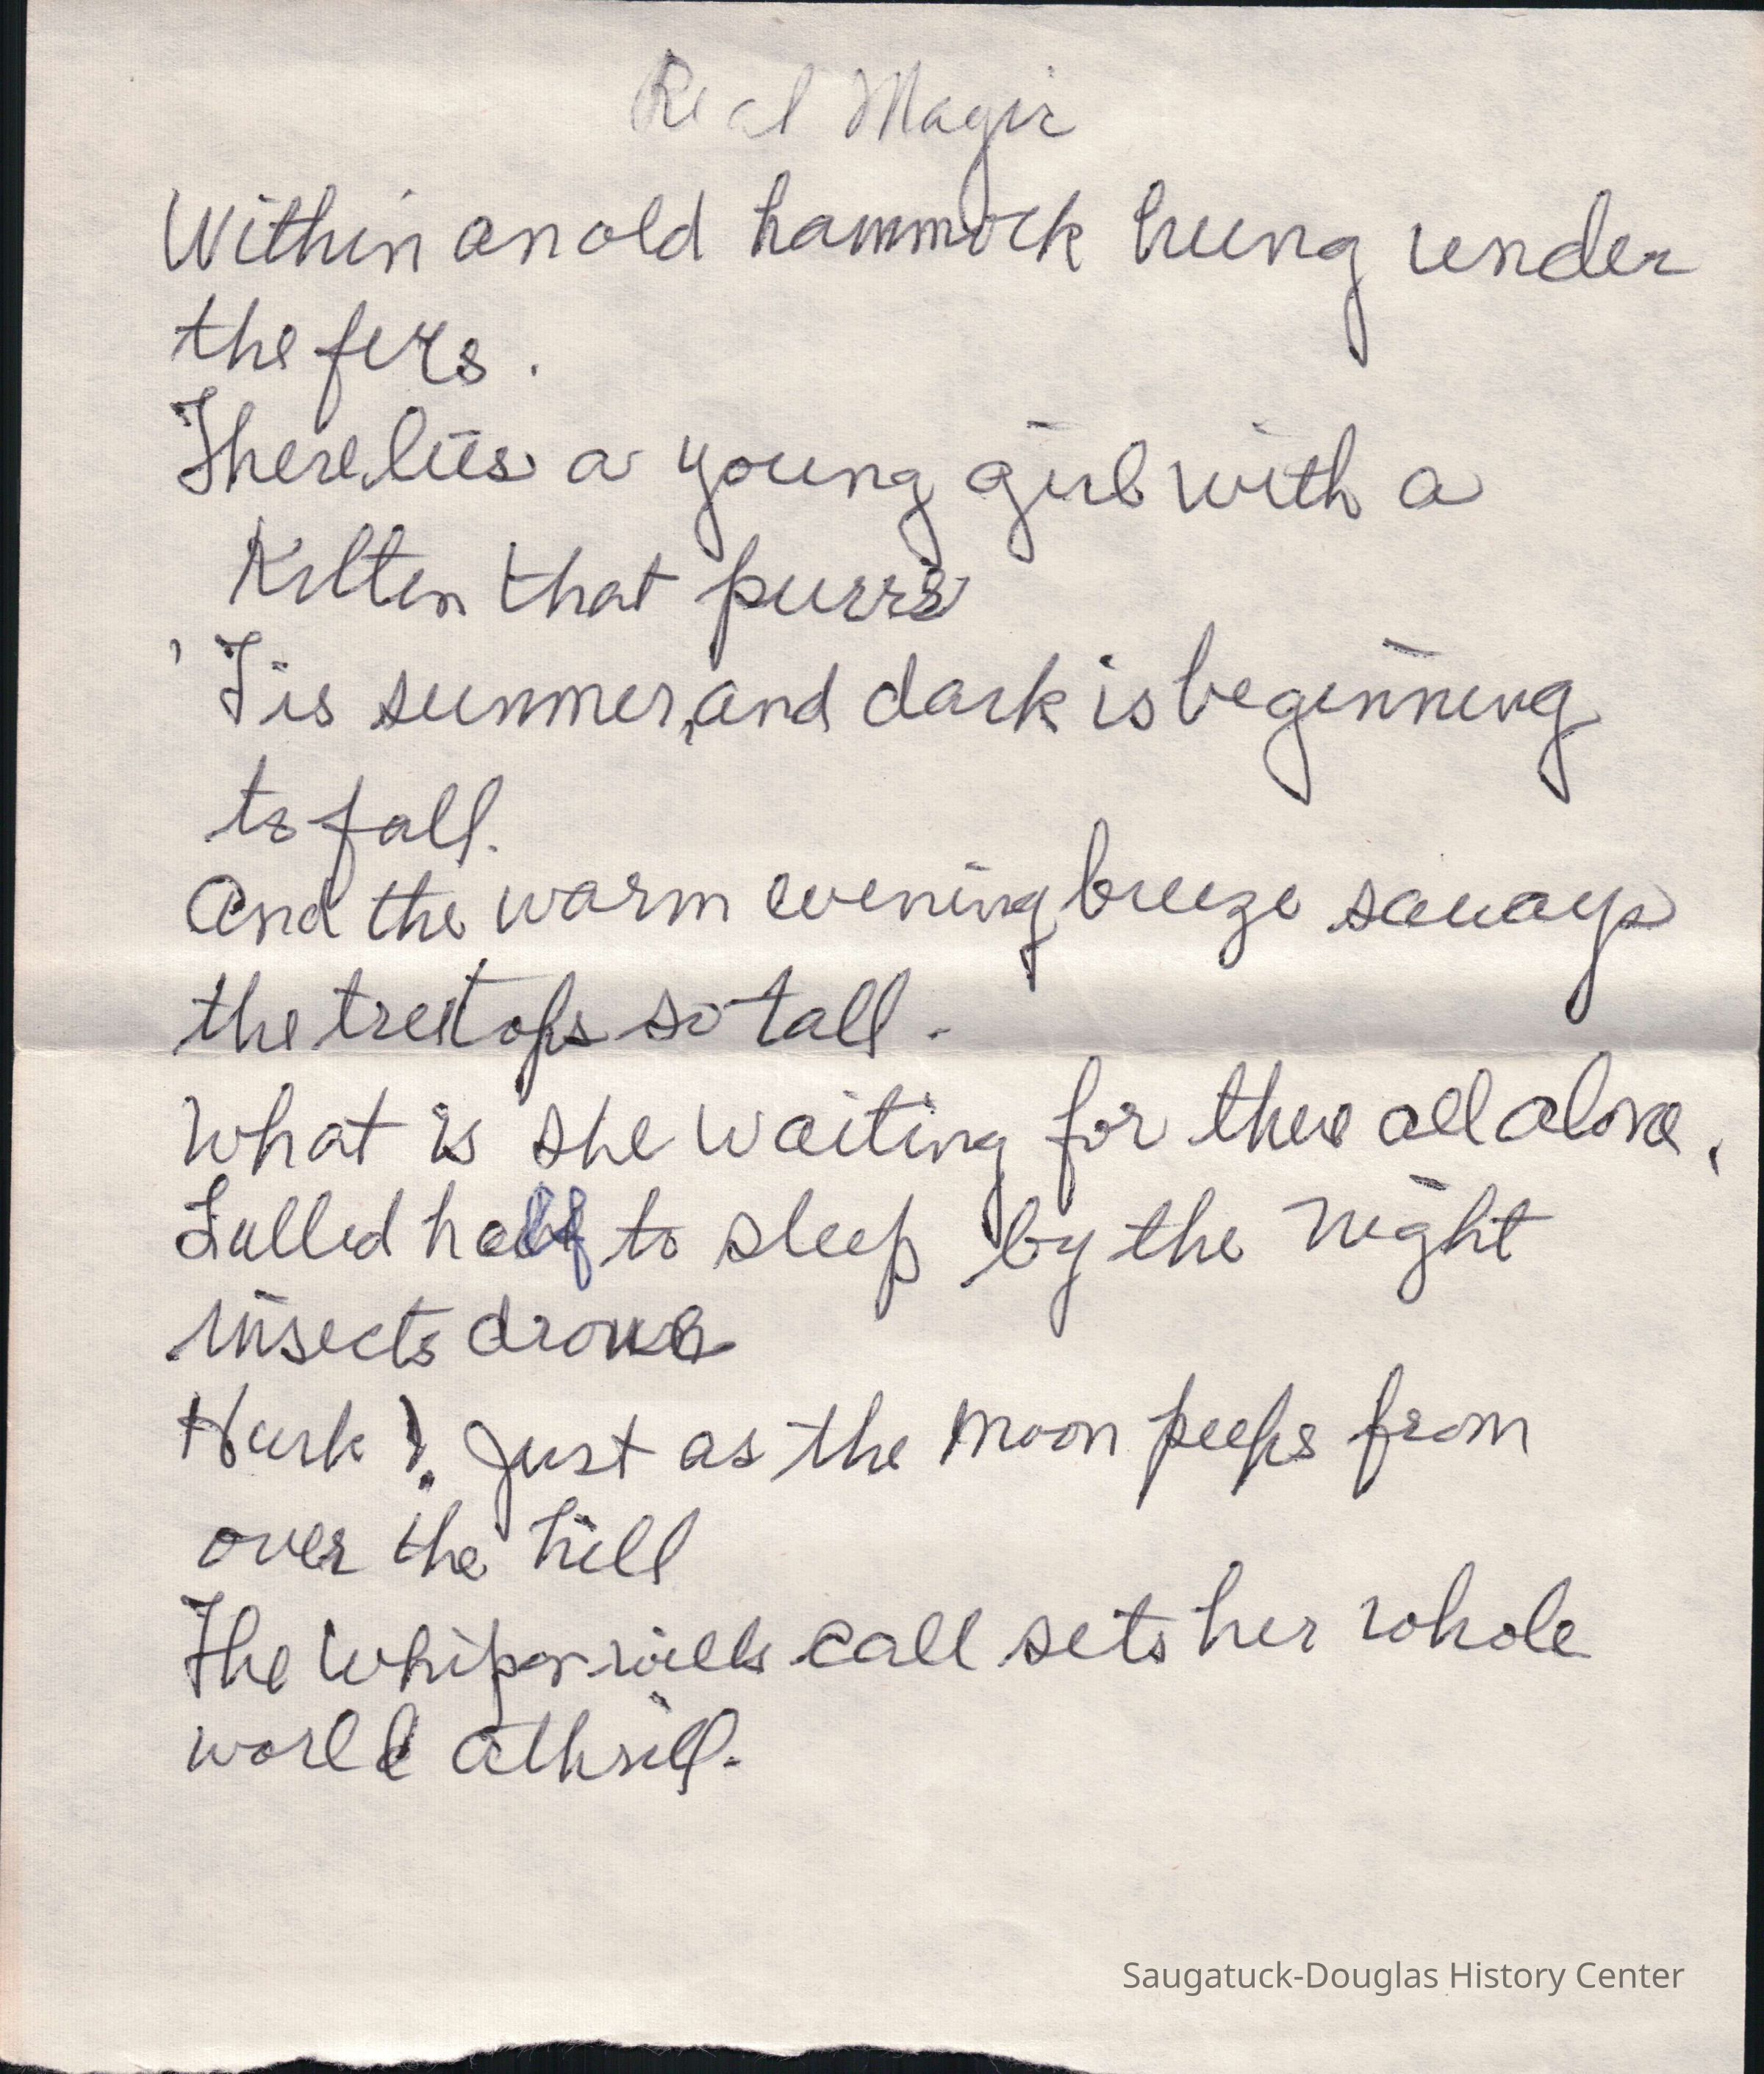 Real Magic
Within an old hammock hung under
the firs.
There lies a young girl with a
Kitten that purrs
'Tis summer, and dark is beginning
to fall.
And the warm evening breeze sways
the treetops so tall.
What is she waiting for there all alone,
Lulled half to sleep by the night
insects drone
Hark! Just as the moon peeps from
over the hill
The Whiporwills call sets her whole
world athrill.
Saugatuck-Douglas History Center